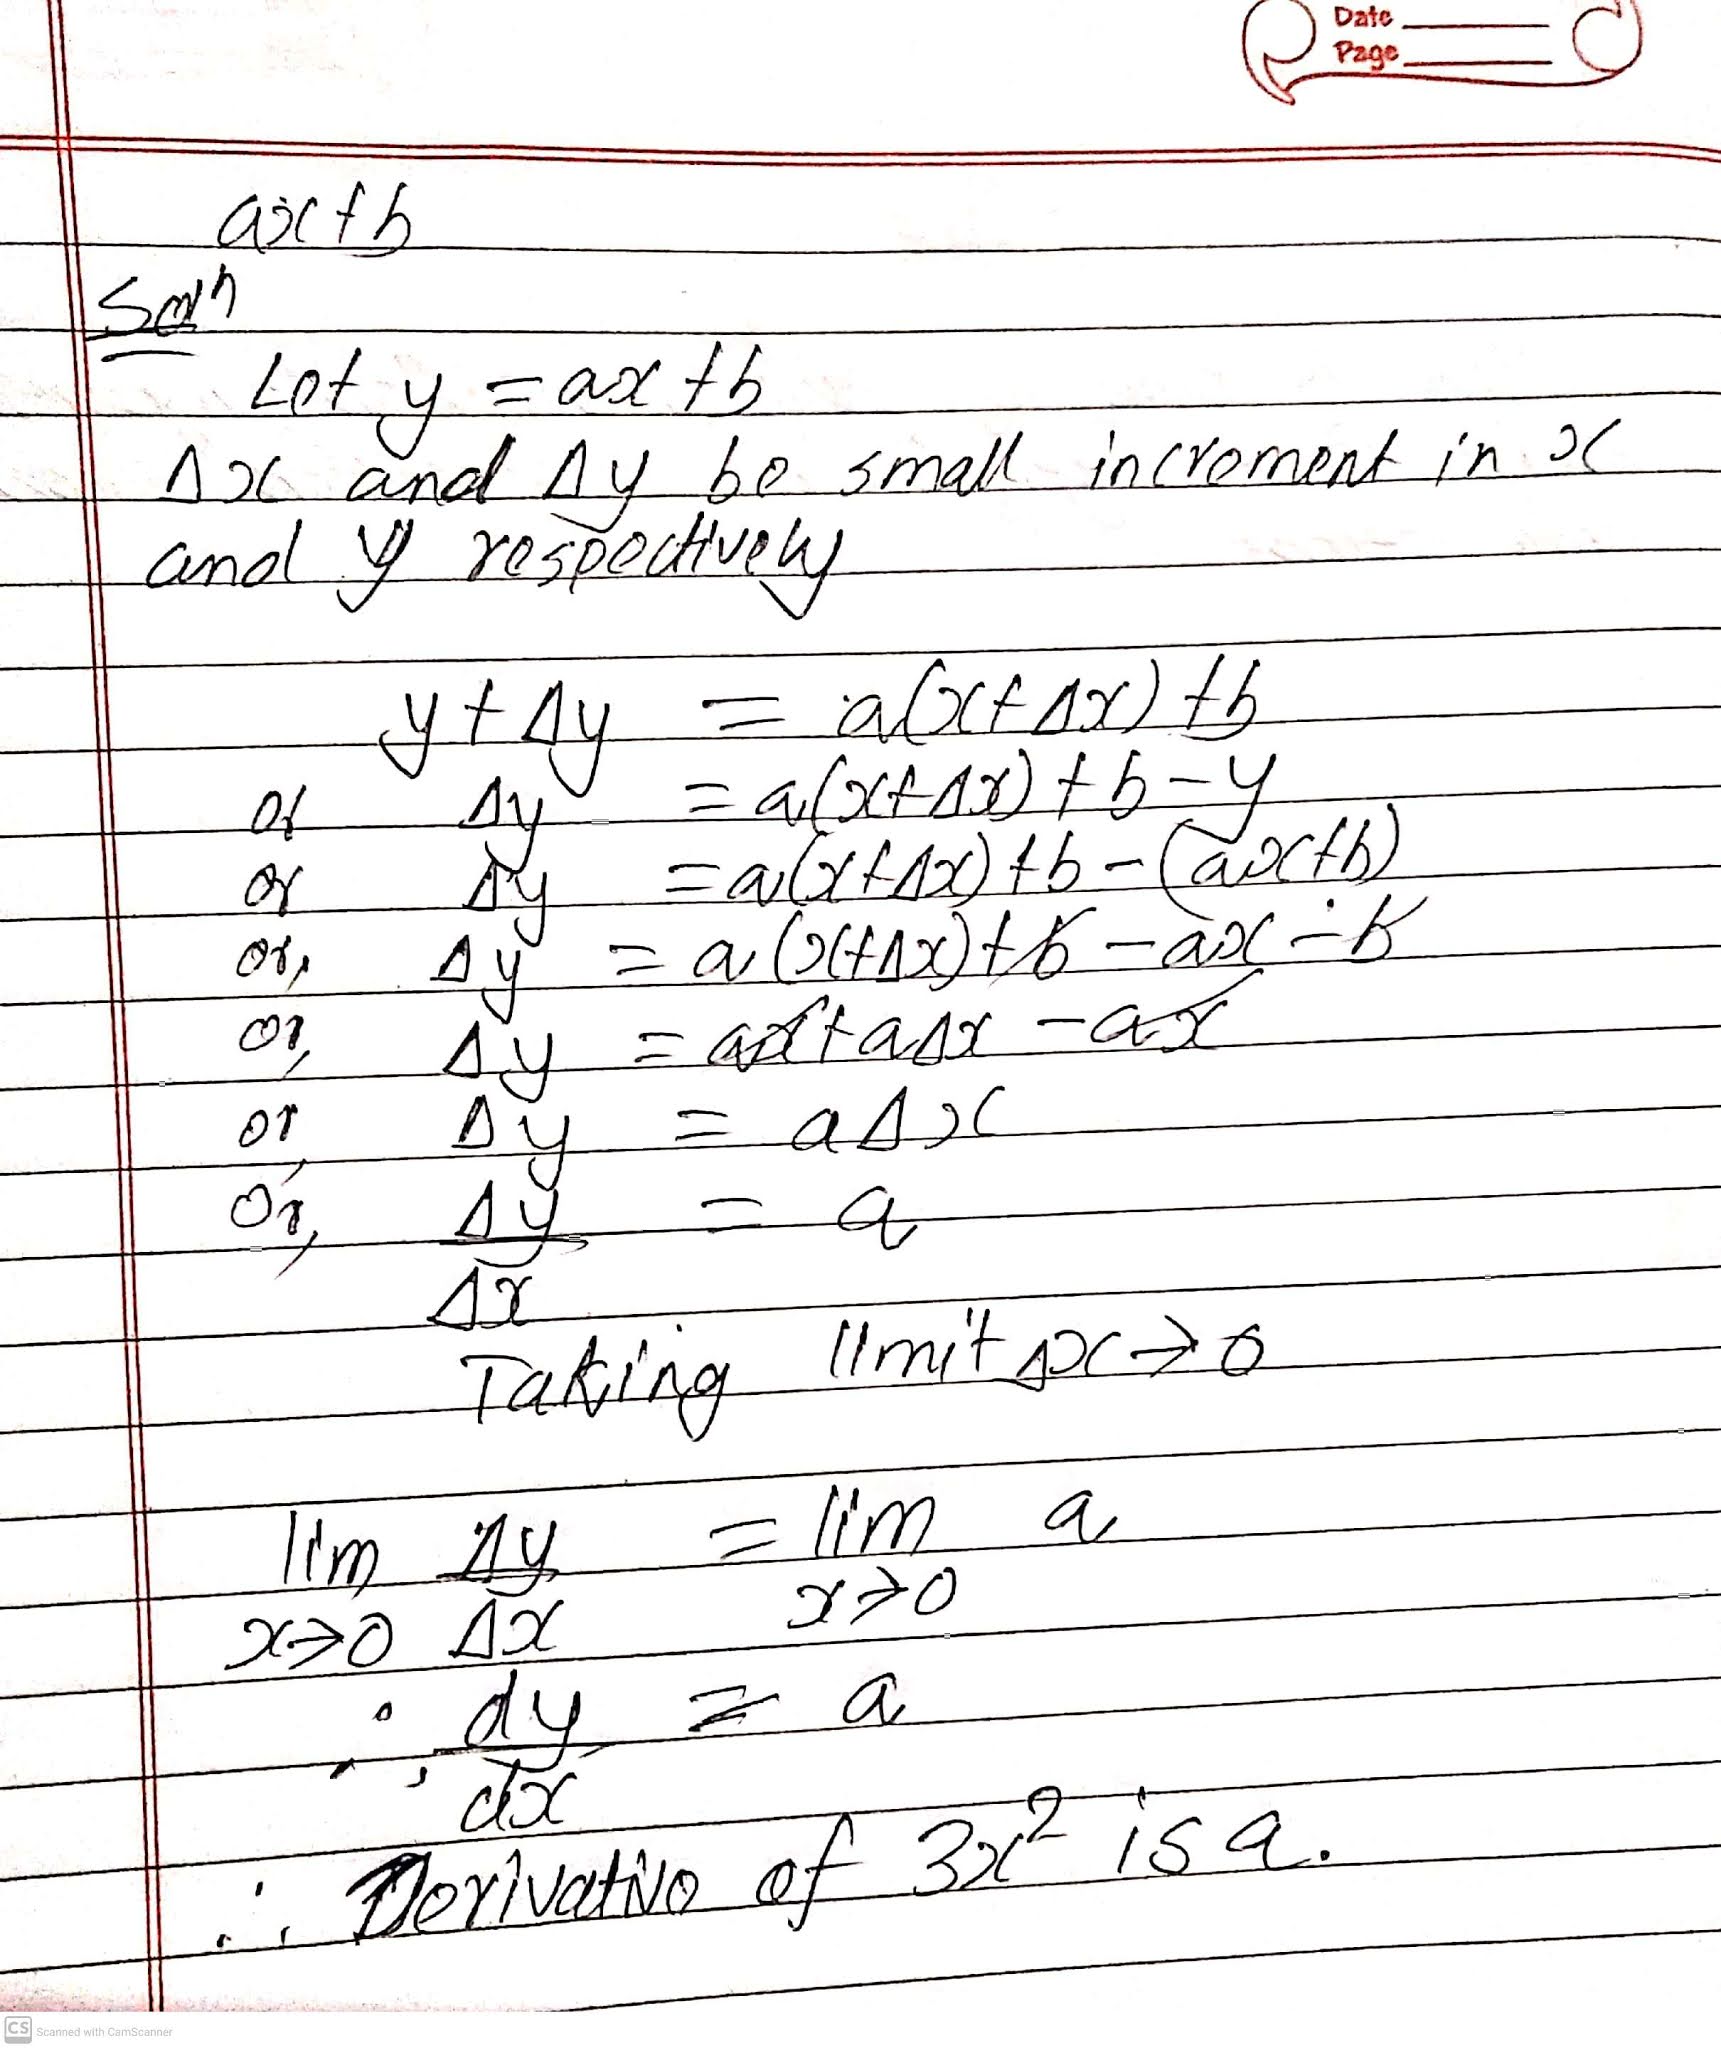 Date
Page
ax+b
Soln
Let y = ax+b
Δx and Δy be small increment in x
and y respectively
y+Δy = a(x+Δx)+b
or Δy = a(x+Δx)+b-y
or Δy = a(x+Δx)+b-(ax+b)
or, Δy = a(x+Δx)+b-ax-b
or, Δy = ax+aΔx-ax
or, Δy = aΔx
Or, Δy = a
Δx
Taking limit Δx→0
lim Δy = lim a
x→0 Δx x→0
∴ dy = a
dx
∴ Derivative of 3x² is a.
CS Scanned with CamScanner